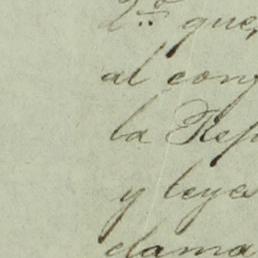 2º que,
al con
la Rep
y leyes
clama